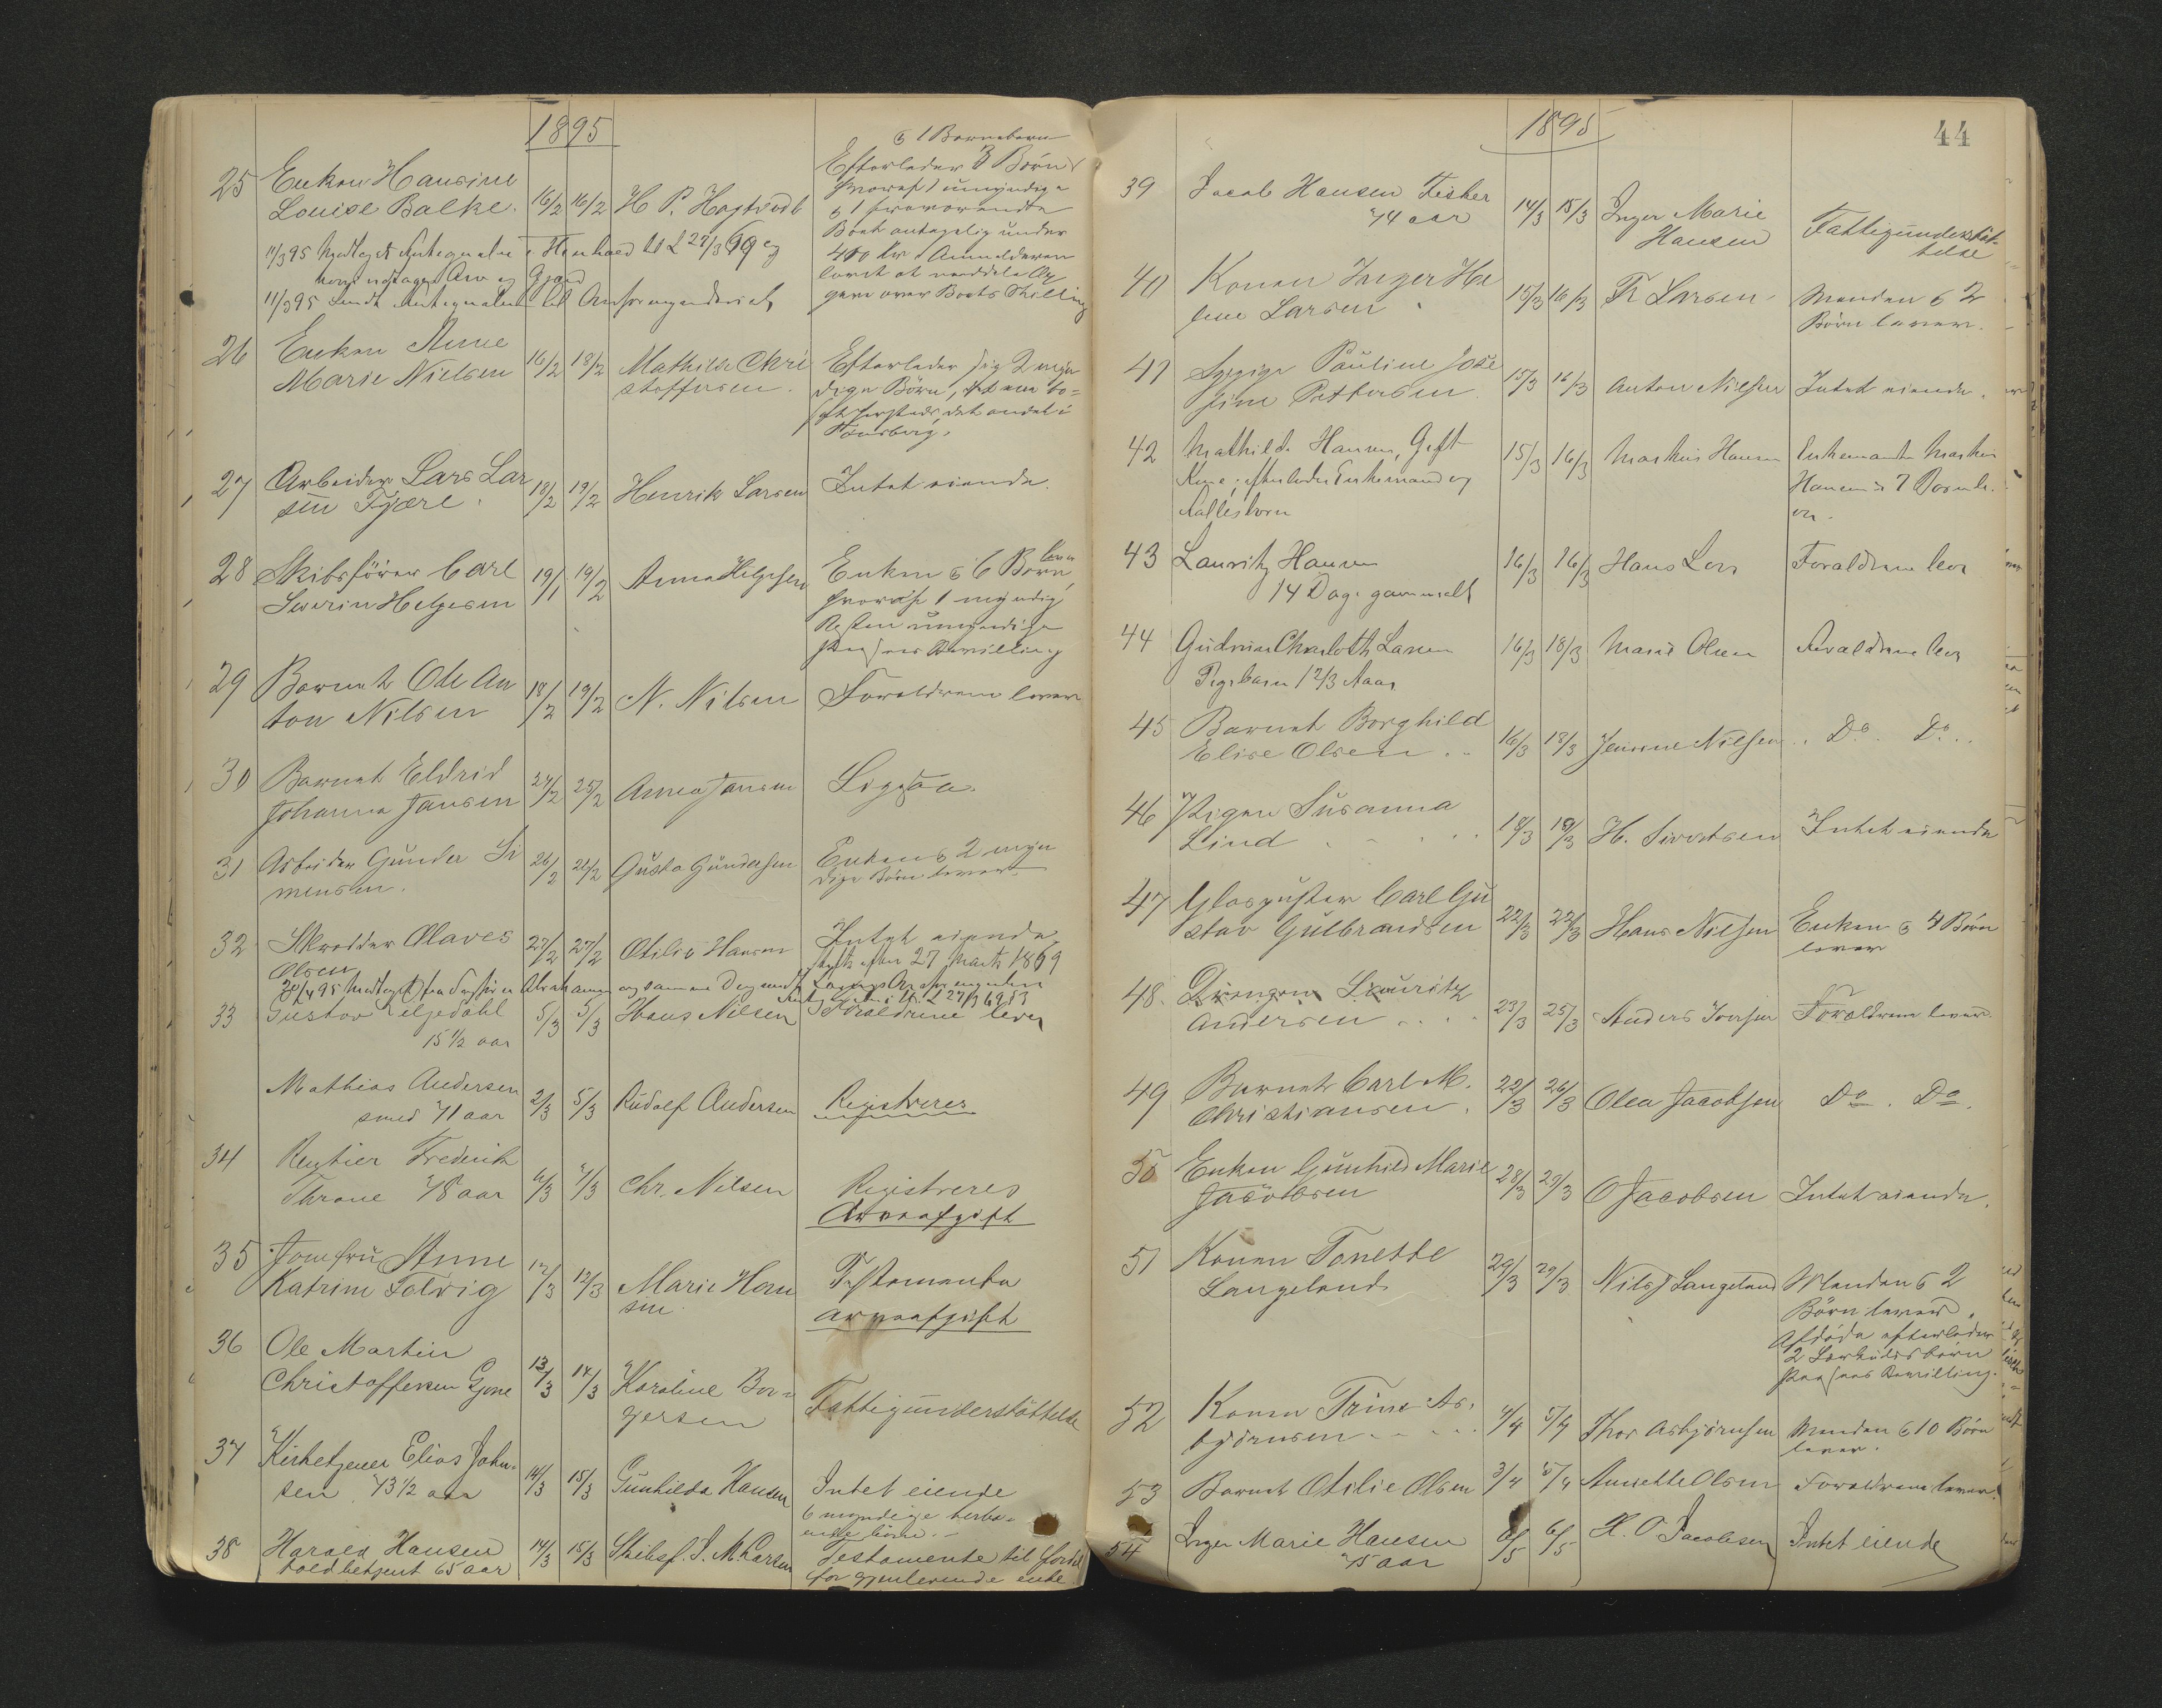 1895
25 Enken Hansine
Louise Balke. 16/2 16/2 H P. Hogtvedt
& 1 Barnebarn
Efterlader 3 Börn
hvoraf 1 umyndige
& 1 fraværende
Boet antagelig under
400 Kr Anmelderen
lovet at meddele
over Boets Stilling
11/3 95 27/3 69 og
Arv og Gjæld
11/3 95 Sendt
26 Enken Anne
Marie Nielsen 16/2 18/2 Mathilde Chri
stoffersen.
Efterlader sig 2 myn
dige Börn, det ene bo-
sat hersteds, det andet i
Tönsberg.
27 Arbeider Lars Lar
sen Tjære. 18/2 19/2 Henrik Larsen Intet eiende.
28 Skibsförer Carl
Severin Helgesen 19/1 19/2 Anna Helgesen
Enken & 6 Börn lever
hvoraf 1 myndig
Resten umyndige
Paaseet Bevilling
29 Barnet Ole An
ton Nilsen 18/2 19/2 N. Nilsen Forældrene lever
30 Barnet Eldrid
Johanna Jansen 24/2 25/2 Anna Jansen Ligesaa.
31 Arbeider Gunder Si
mensen. 26/2 26/2 Gusta Gundersen
Enken & 2 myn
dige Börn lever
32 Skrædder Olaves
Olsen 27/2 27/2 Otilie Hansen
Intet eiende
27 Marts 1869
20/4 95 Modtaget fra og samme Dag sendt
27/3 69
33 Gustav Liljedahl
15 1/2 aar 5/3 5/3 Hans Nilsen Forældrene lever
Mathias Andersen
smed 71 aar 2/3 5/3 Rudolf Andersen Registreres
34 Rentier Frederik
Throne 78 aar 6/3 7/3 Chr. Nilsen Registreres
Arveafgift
35 Jomfru Anne
Katrine Folvig 12/3 12/3 Marie Han
sen.
Testamente
Arveafgift
36 Ole Martin
Christoffersen Gjone 13/3 14/3 Karoline Bör-
gersen
Fattigunderstöttelse
37 Kirketjener Elias John-
sen 73 1/2 aar 14/3 15/3 Gunhilda Hansen Intet eiende
6 myndige herbo-
ende börn.
38 Harald Hansen
toldbetjent 65 aar 14/3 15/3 Skibsf. J. M. Larsen Testamente til fordel
for gjenlevende enke
1895
44
39 Jacob Hansen Fisker
74 aar 14/3 15/3 Inger Marie
Hansen
Fattigunderstöt-
telse
40 Konen Inger He
lene Larsen 15/3 16/3 Fr Larsen Manden & 2
Börn lever.
41 Pauline Jose
fine Pettersen 15/3 16/3 Anton Nilsen Intet eiende.
42 Mathilde Hansen, Gift
Kone, efterlader Enkemand og
fællesbörn 15/3 16/3 Markus Hansen Enkemanden Markus
Hansen & 7
43 Lauritz Hansen
14 Dage gammelt 16/3 16/3 Hans Forældrene lever
44 Gudrun Charlotte Larsen
Pigebarn 1 2/3 Aar 16/3 18/3 Marie Olsen Forældrene lever
45 Barnet Borghild
Elise Olsen 16/3 18/3 Jensine Nilsen Do. Do.
46 Pigen Susanna
Lind 18/3 19/3 H. Sivertsen Intet eiende
47 Glaspuster Carl Gu
stav Gulbrandsen 22/3 22/3 Hans Nilsen Enken & 4 Börn
lever
48. Drengen Lauritz
Andersen 23/3 25/3 Anders Iversen Forældrene lever.
49 Barnet Carl M.
Christiansen. 22/3 26/3 Olea Jacobsen Do. Do.
50 Enken Gunhild Marie
Jacobsen 28/3 29/3 O Jacobsen Intet eiende.
51 Konen Tonette
Langeland 29/3 29/3 Nils J Langeland Manden & 2
Börn lever.
Afdöde efterlader
2 Særkuldsbörn
Paaseet Bevilling.
52 Konen Trine As-
björnsen 4/4 5/4 Thor Asbjörnsen Manden & 10 Börn
lever.
53 Barnet Otilie Olsen 3/4 5/4 Annette Olsen Forældrene lever.
54 Inger Marie Hansen
75 aar 6/5 6/5 H. O Jacobsen Intet eiende